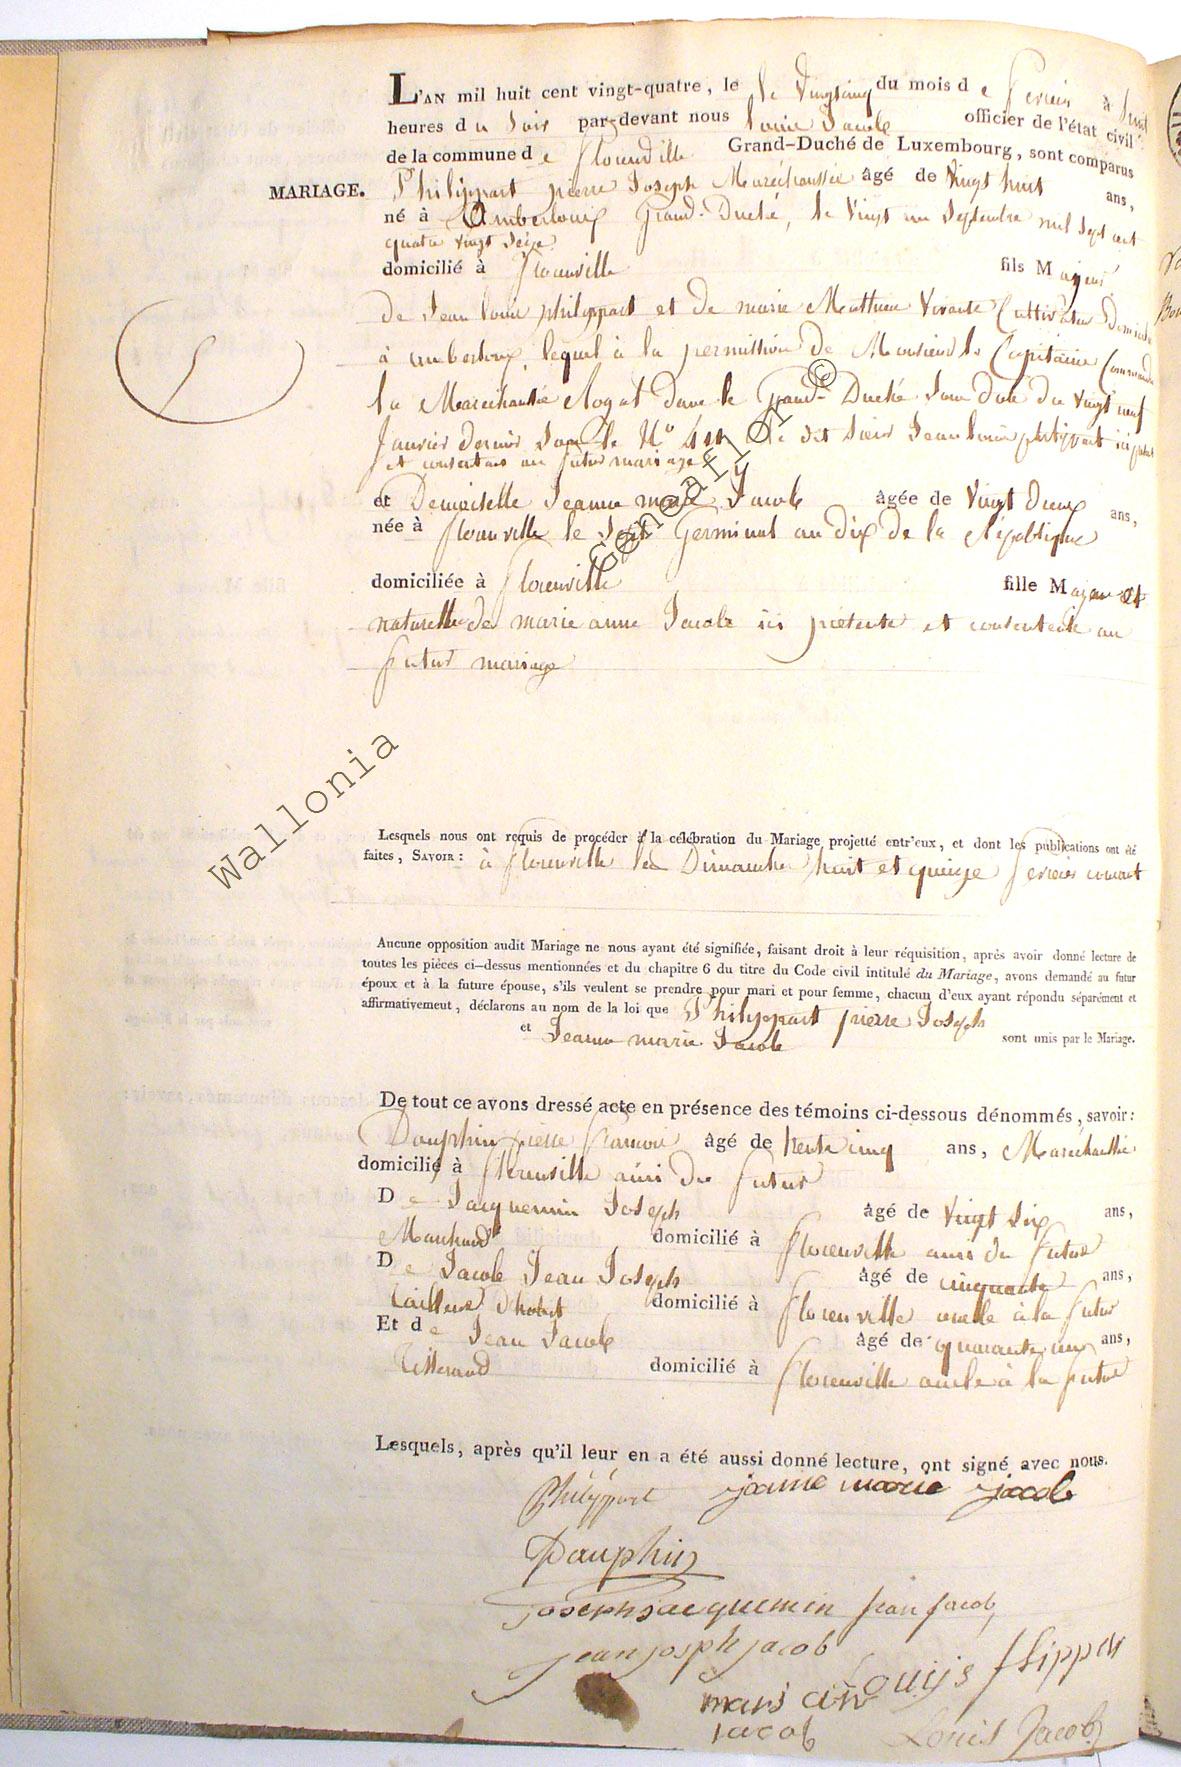 L'AN mil huit cent vingt-quatre, le le vingt cinq du mois d e fevrier à
heures d u soir par-devant nous Louis Jacob officier de l'état civil
de la commune d e florenville Grand-Duché de Luxembourg, sont comparus
MARIAGE.
Philippart pierre Joseph Maréchaussée âgé de vingt huit ans,
né à Amberloup Grand-Duché, le vingt un septembre mil sept cent
quatre vingt seize
domicilié à florenville fils M ajeur
de Jean Louis philippart et de marie Mathieu vivante Cultivateur
à amberloup, lequel à la permission de Monsieur le Capitaine Commandant
la Maréchaussée dans le Grand-Duché sous date du vingt neuf
Janvier dernier sous le N° le dit sieur Jean Louis philippart ici present
et consentant au futur mariage
et Demoiselle Jeanne marie Jacob âgée de vingt deux ans,
née à florenville le sept Germinal an dix de la République
domiciliée à florenville fille M ajeure et
naturelle de marie anne Jacob ici présente et consentente au
futur mariage
Lesquels nous ont requis de procéder à la célébration du Mariage projetté entr'eux, et dont les publications ont été
faites, SAVOIR : à florenville les Dimanche huit et quinze fevrier courant
Aucune opposition audit Mariage ne nous ayant été signifiée, faisant droit à leur réquisition, après avoir donné lecture de
toutes les piéces ci-dessus mentionnées et du chapitre 6 du titre du Code civil intitulé du Mariage, avons demandé au futur
époux et à la future épouse, s'ils veulent se prendre pour mari et pour femme, chacun d'eux ayant répondu séparément et
affirmativement, déclarons au nom de la loi que Philippart pierre Joseph
et Jeanne marie Jacob sont unis par le Mariage.
De tout ce avons dressé acte en présence des témoins ci-dessous dénommés, savoir :
Dauphin pierre francois âgé de trente cinq ans, Maréchaussée
domicilié à florenville ami du futur
D e Jacquemin Joseph âgé de vingt six ans,
Marchand domicilié à florenville ami du futur
D e Jacob Jean Joseph âgé de cinquante ans,
tailleur d'habit domicilié à florenville oncle à la futur
Et d e Jean Jacob âgé de quarante un ans,
tisserand domicilié à florenville oncle à la futur
Lesquels, après qu'il leur en a été aussi donné lecture, ont signé avec nous.
Philippart janne marie jacob
Dauphin
joseph jacquemin jean jacob
jean joseph jacob Louijs flippar
mari ann
jacob Louis Jacob
Wallonia
Généaflor ©